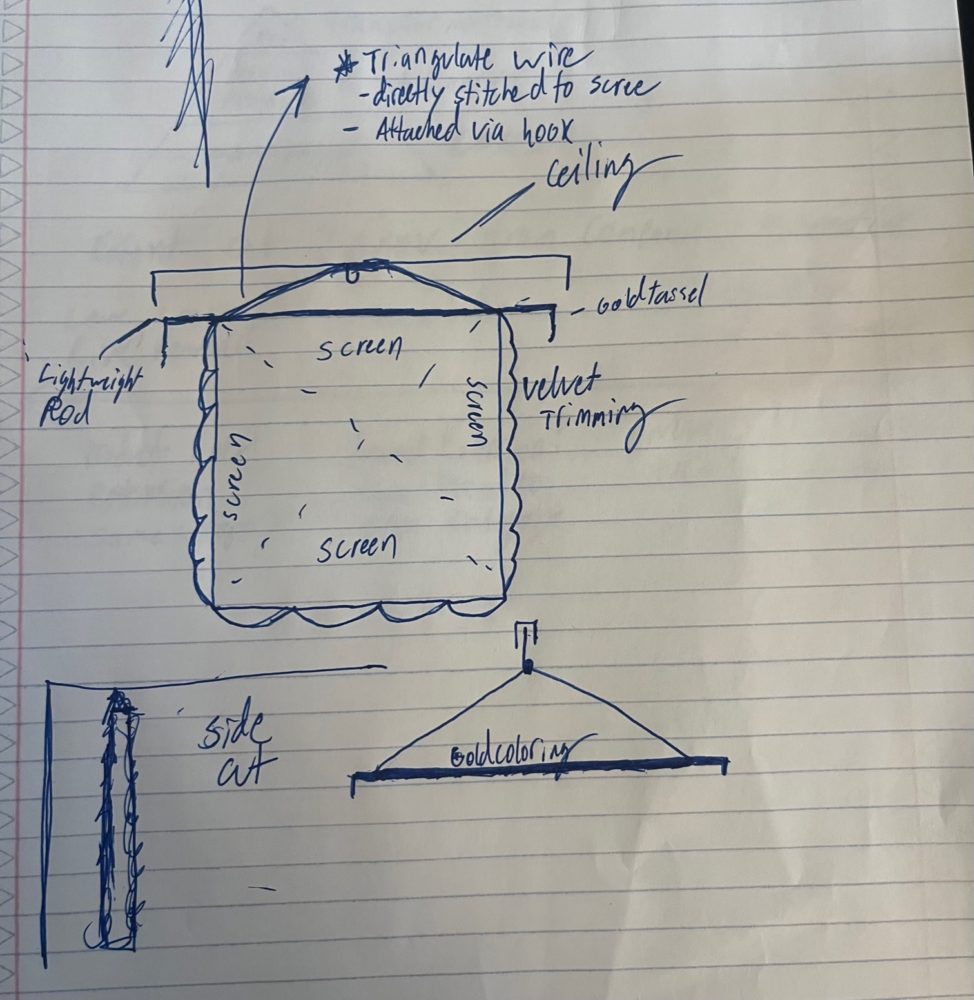 * Triangulate wire
- directly stitched to scree
- Attached via hook
ceiling
Goldtassel
Lightweight
Rod
screen
screen
velvet
Trimming
screen
screen
side
cut
Goldcoloring